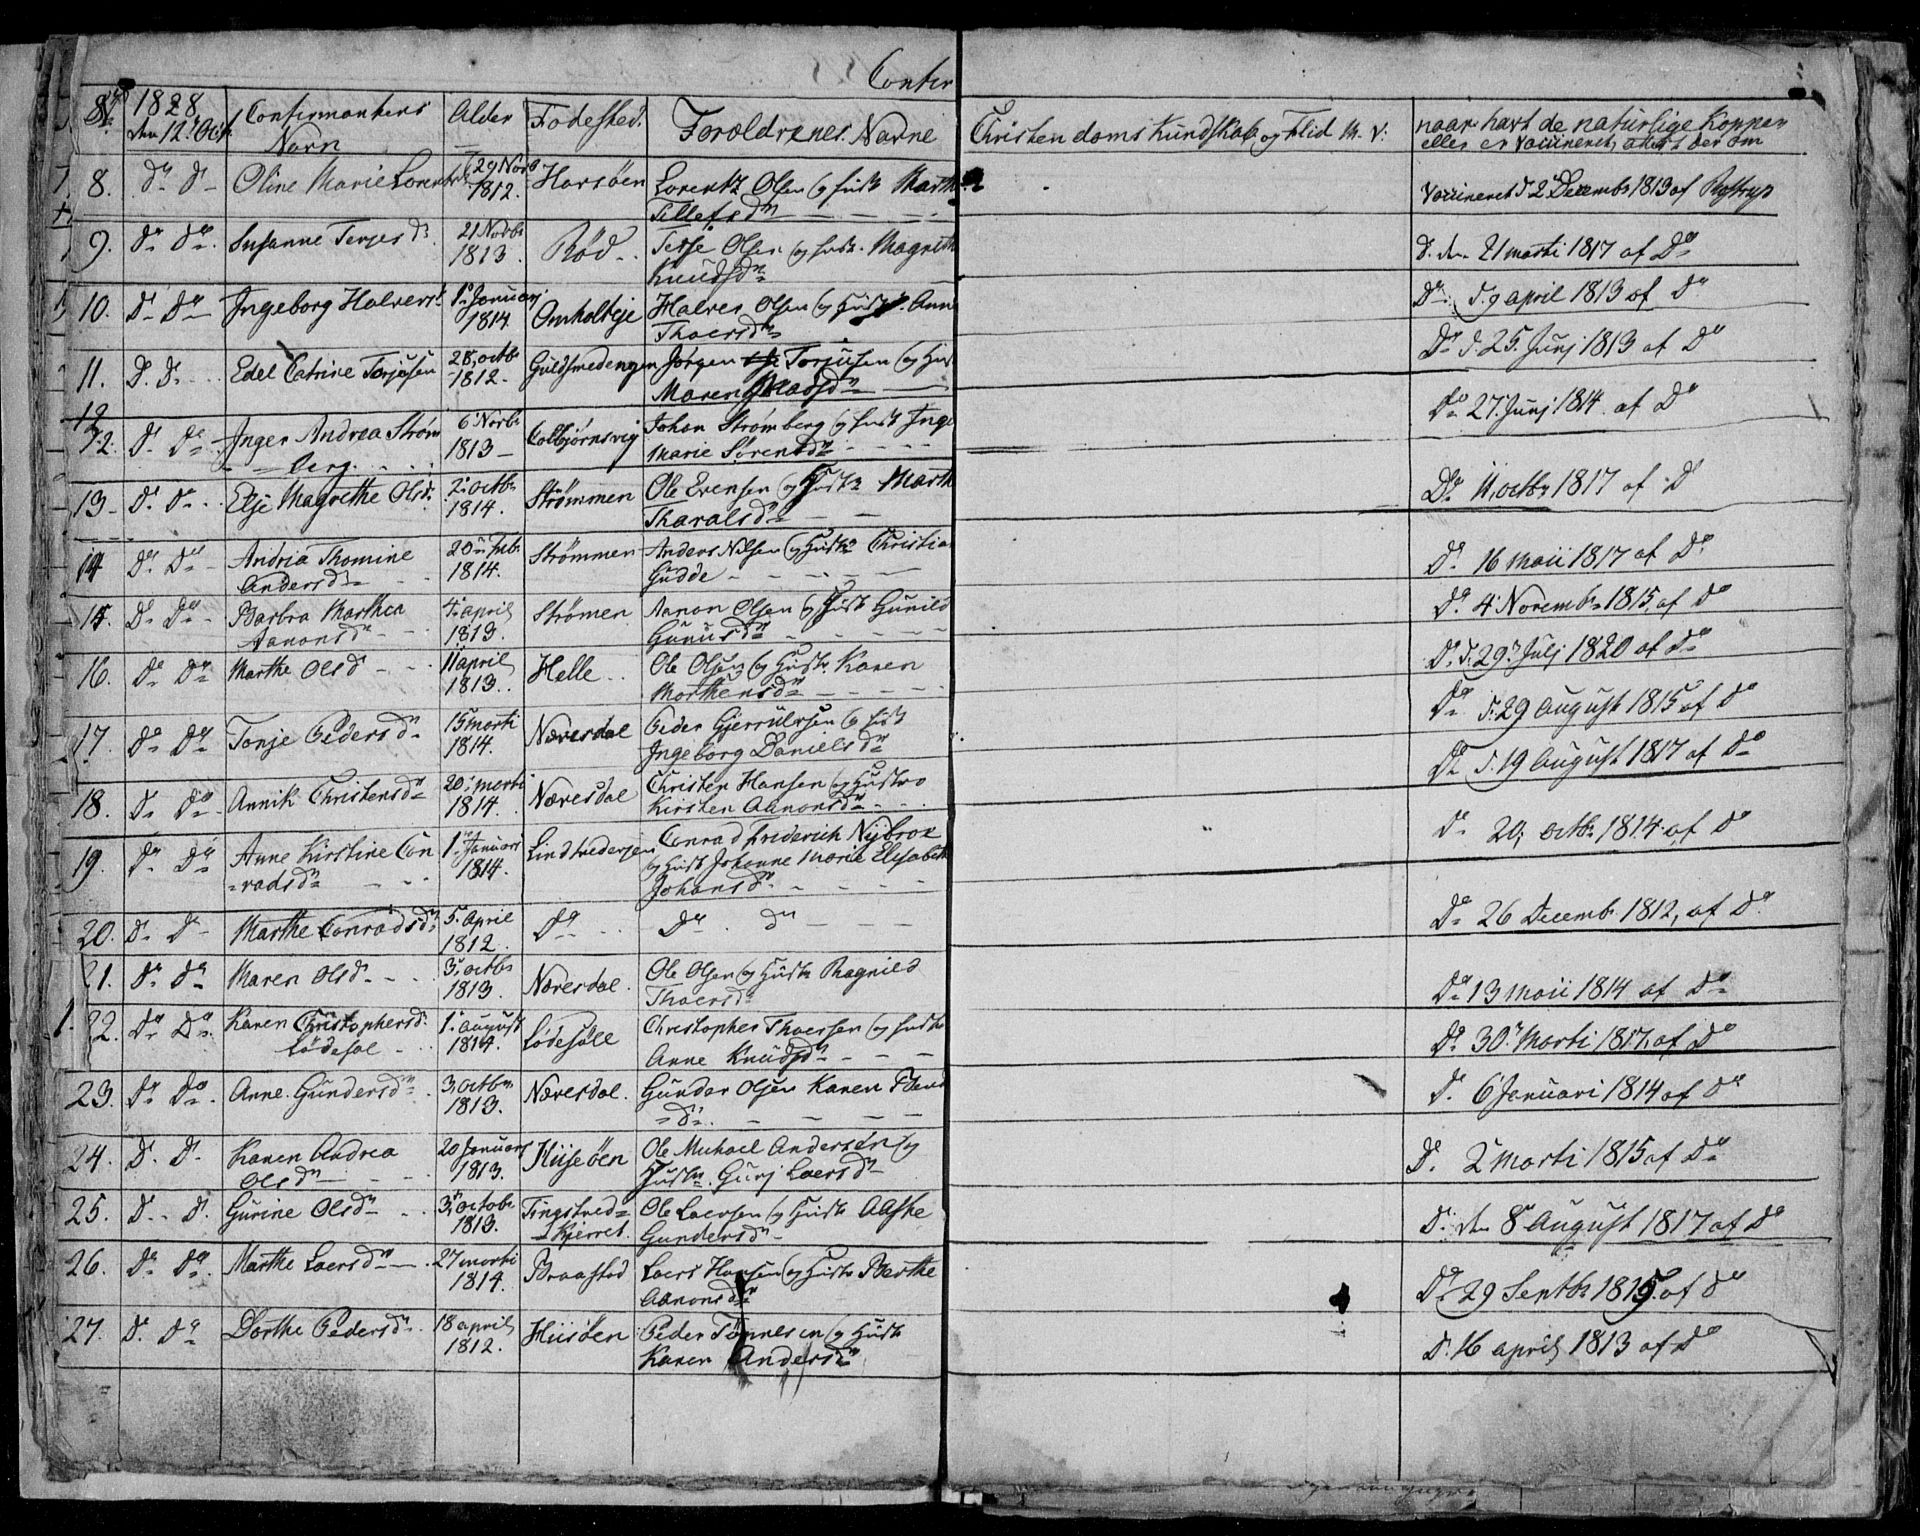 Confir
No 1828 den 12te Octb Confirmantens Navn Alder Fødested Forældrenes Navne Christendoms Kundskab og Flid naar havt de naturlige Kopper
eller er Vaccineret, der om
8. Do Do Oline Marie Lorents 29 Novb 1812. Havsøen Lorentz Olsen og Hust Marth
Tellefsdn Vaccineret d 2 Decembr 1813 af
9. Do Do. Susanne Terjesd. 21 Novbr 1813. Rød Terje Olsen og Hustr. Magreth
Knudsdn D. den 21 marti 1817 af Do
10. Do Do Ingeborg Halvors 1 Januarj 1814 Omholteje Halvor Olsen og Hust. Anne
Thorsdn Do. d. 9 april 1813 af Do
11. D. D. Edel Catrine Torjusen 28 octbr 1812. Guldsmedengen Jørgen Torjusen og Hust
Maren Madsdn Do d. 25. Junj 1813 af Do
12
12. D. Do Inger Andrea Strøm
berg. 6 Novbr 1813 Colbjørnsvig Johan Strømberg og Hust Inge
Marie Sørensdn Do 27 Junj 1814 af Do
13 D. Do Elje Magrethe Olsd. 2 octbr 1814. Strømmen Ole Evensen og Hustr Marth
Tharalsdn Do 11 octbr 1817 af D
14 Do. Do Andria Thomine
Andersdn 20 Feb. 1814. Strømmen Anders Nilsen og Hustr Christia
Gudde Do. 16 Maii 1817 af Do.
15. D. Do Barbra Marthea
Aanonsdn 4 april 1813. Strømen Aanon Olsen og Hust Gunild
Gunusdn Do. 4 Novembr 1815 af Do
16. Do Do Marthe Olsd 11 april 1813. Helle Ole Olsen og Hustr Karen
Morthensdn Do. d. 29 Julj 1820 af Do
17. Do Do Tonje Pedersdn 15 marti 1814. Næresdal Peder Gjerrulvsen og Hust
Ingeborg Danielsdn Do d. 29 August 1815 af Do
18. D. Do Annik Christensdn 20 marti 1814. Næresdal Christen Hansen og Hustro
Kirsten Aanonsdn Do d. 19 August 1817 af Do
19. Do Do Anne Kirstine Con
radsdn 1 Januari 1814. Lindtvedejen Conrad Frederich Nybroe
og Hust Johanne Marie Elisabeth
Johansd. Do 20 octbr 1814 af Do
20. D. D. Marthe Conradsdn 5 April 1812. Do Do D Do 26 Decembr 1812, af Do
21. Do Do Maren Olsd 3 octbr 1813. Næresdal. Ole Olsen og Hustr Ragnild
Thoersd Do 13 maii 1814 af Do
22. Do Do Karen Christophersd.
Lødesøl 1 august 1814. Lødesøll Christopher Thoersen og Hustr
Anne Knudsdn Do 30 Marti 1817 af Do
23. Do Do. Anne Gundersdn 3 octbr 1813. Næresdal. Gunder Olsen Karen
D. 6 Januari 1814 af Do
24. D. D. Karen Andrea
Olsdn 20 Januari 1813. Hiisøen Ole Michael Andersen og
Hustr. Gurj Laersdn Do. 2 marti 1815 af Do
25. D. D. Gurine Olsdn 3 octobr 1813. Tingstved
Kjerret. Ole Laersen og Hustr Aaske
Gundersdn D. den 8 August 1817 af Do
26. Do Do. Marthe Laersdn 27 marti 1814. Braastad Laers Hansen og Hustr Berthe
Aanonsdn Do 29 Septbr 1815 af Do
27. D. Do Dorthe Pedersdn 18 april 1812. Hiisøen Peder Tønnesen og Hustr
Karen Andersdn D. 16 april 1813 af Do